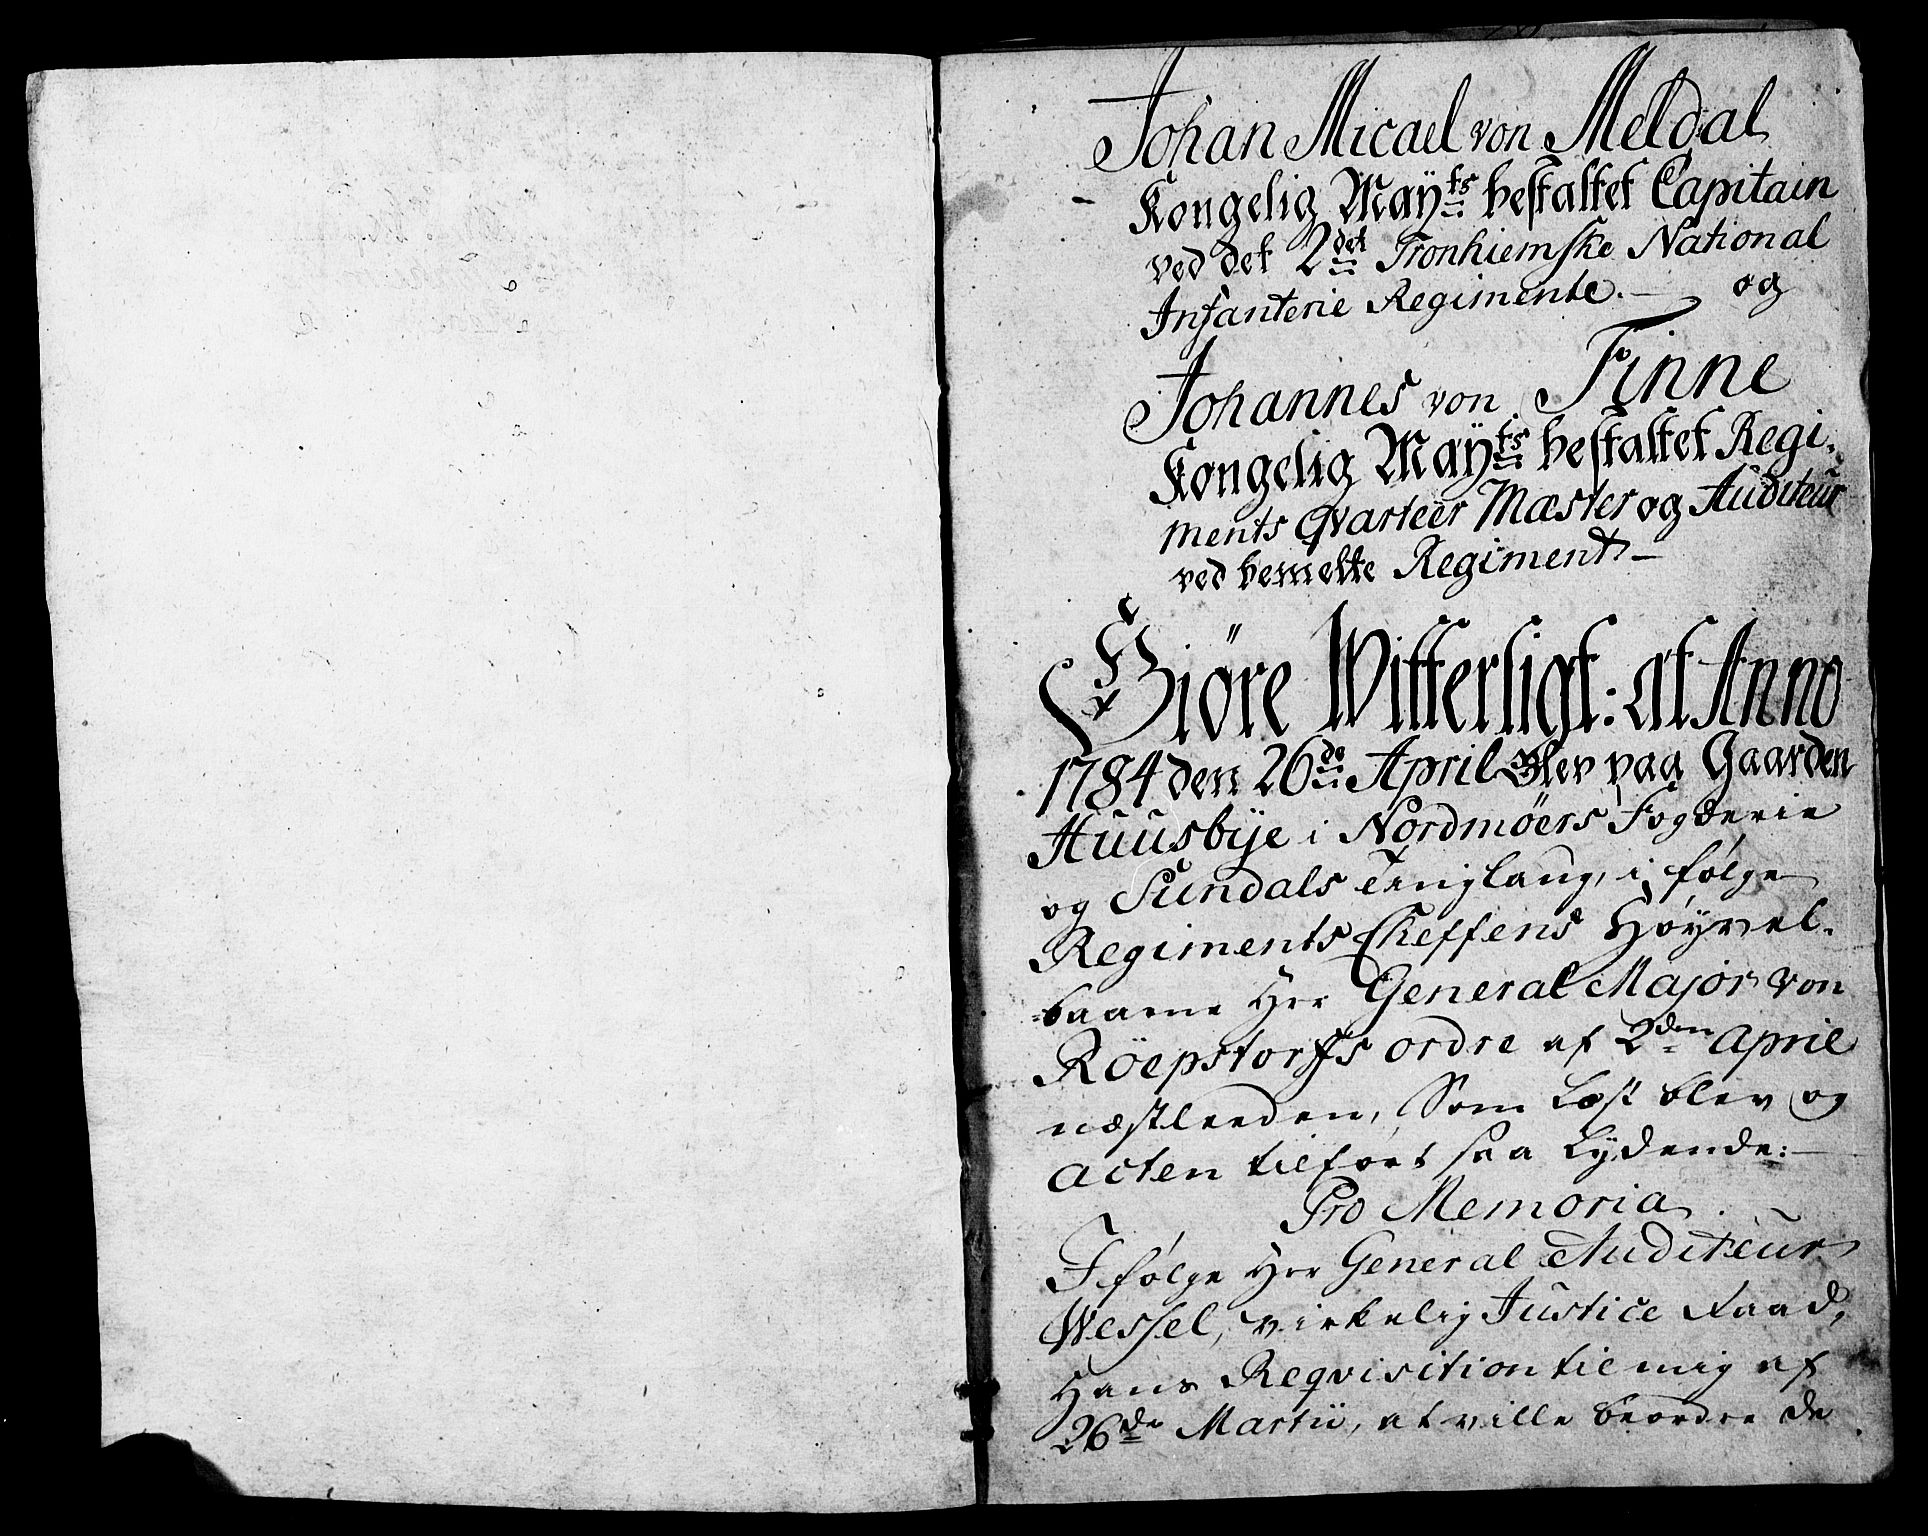 Johan Micael von Meldal
Kongelig Mayts bestaltet Capitain
ved det 2det Tronhiemske National
Infanterie Regimente. — og
Johannes von Finne
Kongelig Mayts bestaltet Regi-
ments Qvarteer Mæster og Auditeur
ved bemelte Regiment —
Giöre Witterligt: at Anno
1784 den 26de April Blev paa Gaarden
Huusbye i Nordmöers Fogderie
og Sundals Tinglaug, i følge
Regiments Cheffens Høyvel-
-baarne Her General Major von
Röepstorffs ordre af 2den April
næstleeden, Som Læst blev og
Acten tilført saa Lydende: —
Pro Memoria.
I følge Her General Auditeur
Wessel, virkelig Justice Raad,
Hans Reqvisition til mig af
26de Martii, at ville beordre de